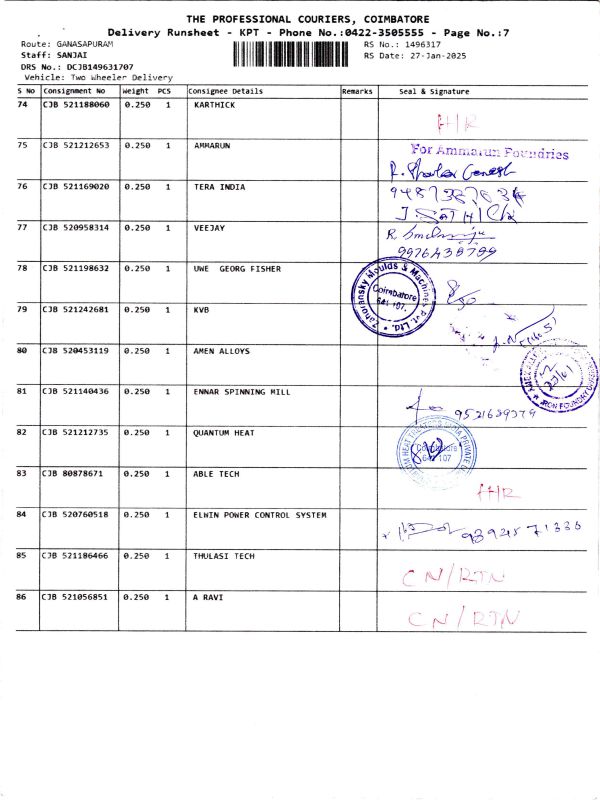 THE PROFESSIONAL COURIERS, COIMBATORE
Delivery Runsheet - KPT - Phone No.:0422-3505555 - Page No.:7
Route: GANASAPURAM
RS No.: 1496317
Staff: SANJAI
RS Date: 27-Jan-2025
DRS No.: DCJB149631707
Vehicle: Two Wheeler Delivery
S No Consignment No Weight PCS Consignee Details Remarks Seal & Signature
74 CJB 521188060 0.250 1 KARTHICK
H/R
75 CJB 521212653 0.250 1 AMMARUN
For Ammarun Foundries
76 CJB 521169020 0.250 1 TERA INDIA
77 CJB 520958314 0.250 1 VEEJAY
9976438799
78 CJB 521198632 0.250 1 UWE GEORG FISHER
Zahoransky Moulds & Machines Pvt. Ltd.
Coimbatore
641 107.
79 CJB 521242681 0.250 1 KVB
80 CJB 520453119 0.250 1 AMEN ALLOYS
IRON FOUNDRY DIVISION
81 CJB 521140436 0.250 1 ENNAR SPINNING MILL
82 CJB 521212735 0.250 1 QUANTUM HEAT
Coimbatore
641 107
83 CJB 80878671 0.250 1 ABLE TECH
H/R
84 CJB 520760518 0.250 1 ELWIN POWER CONTROL SYSTEM
85 CJB 521186466 0.250 1 THULASI TECH
CN/RTN
86 CJB 521056851 0.250 1 A RAVI
CN/RTN